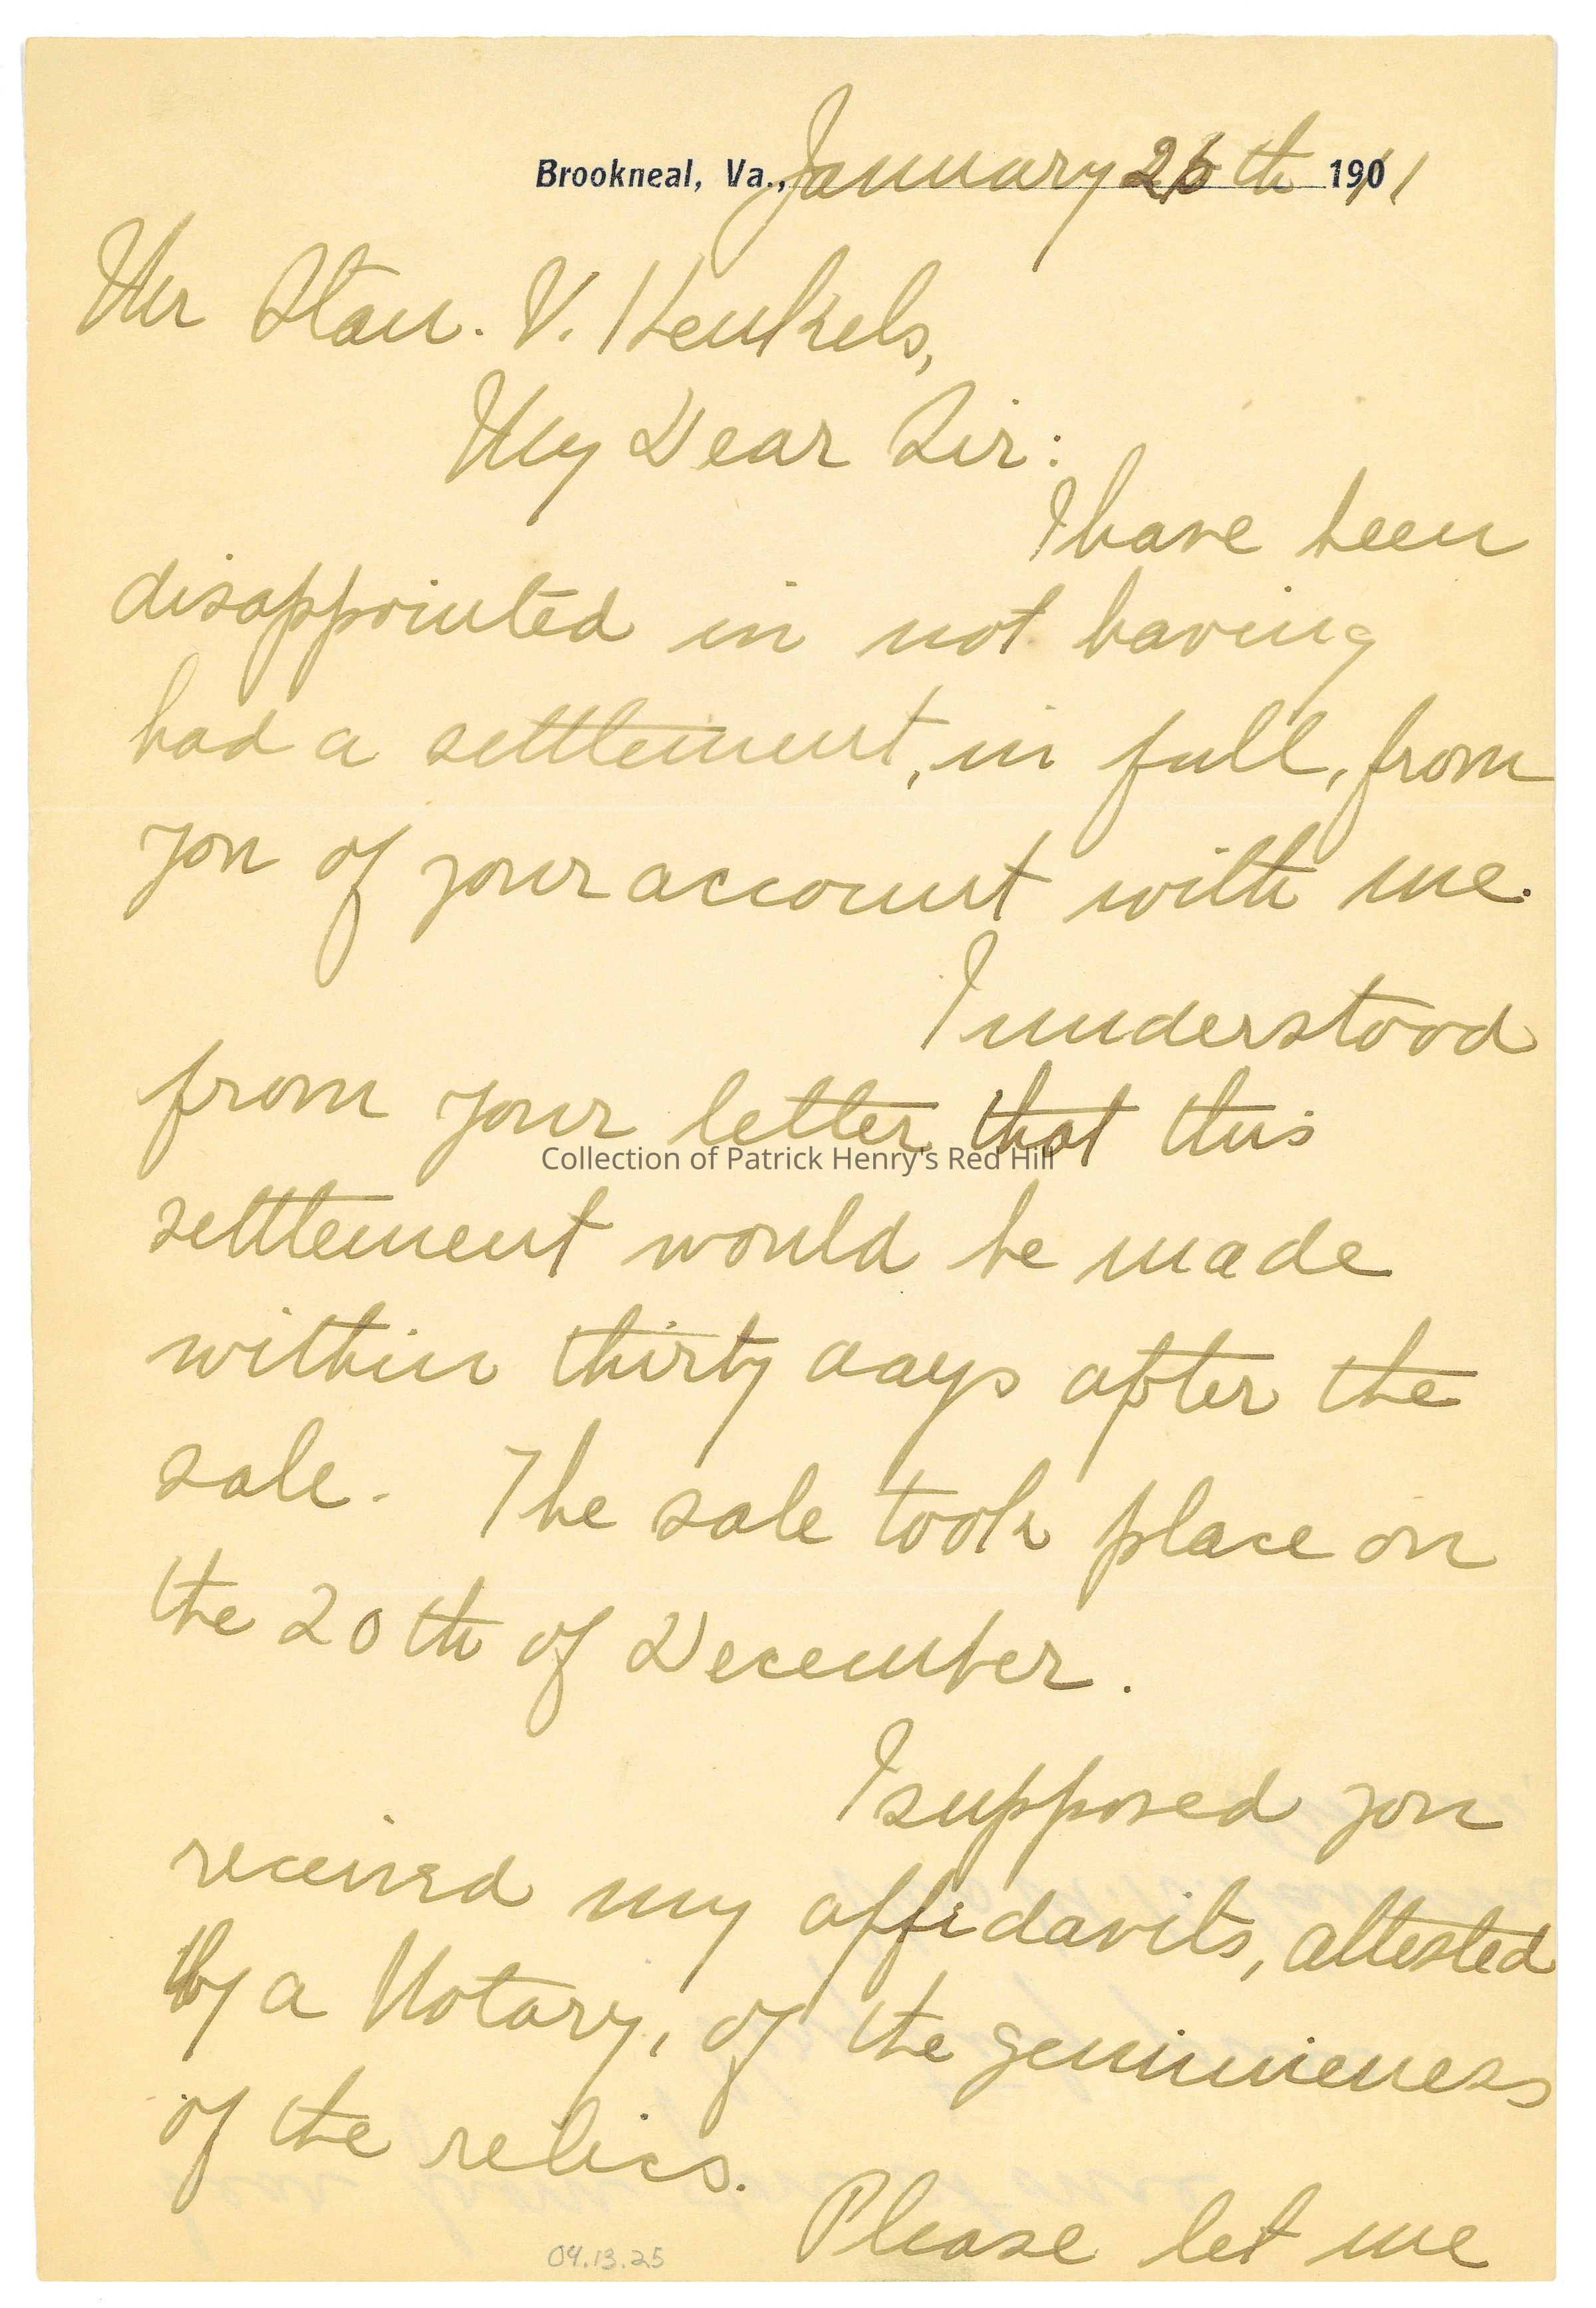 Brookneal, Va., January 26th 1911
Mr Stan. V. Henkels,
My Dear Sir:
I have been
disappointed in not having
had a settlement, in full, from
you of your account with me.
I understood
from your letter that this
Collection of Patrick Henry's Red Hill
settlement would be made
within thirty days after the
sale. The sale took place on
the 20th of December.
I supposed you
received my affidavits, attested
by a Notary, of the genuineness
of the relics.
Please let me
09.13.25